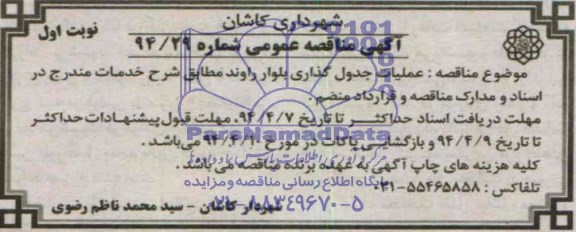 شهرداری کاشان
نوبت اول
آگهی مناقصه عمومی شماره ۹۴/۲۹
موضوع مناقصه : عملیات جدول گذاری بلوار راوند مطابق شرح خدمات مندرج در
اسناد و مدارک مناقصه و قرارداد منضم .
مهلت دریافت اسناد حداکثر تا تاریخ ۹۴/۴/۷، مهلت قبول پیشنهادات حداکثر
تا تاریخ ۹۴/۴/۹ و بازگشایی پاکات در مورخ ۹۴/۴/۱۰ می‌باشد .
کلیه هزینه های چاپ آگهی به عهده برنده مناقصه می باشد .
تلفاکس : ۵۵۴۶۵۸۵۸-۰۳۱
شهردار کاشان - سید محمد ناظم رضوی
ParsNamadData
پایگاه اطلاع رسانی مناقصه و مزایده
۰۲۱-۸۸۳۴۹۶۷۰-۵